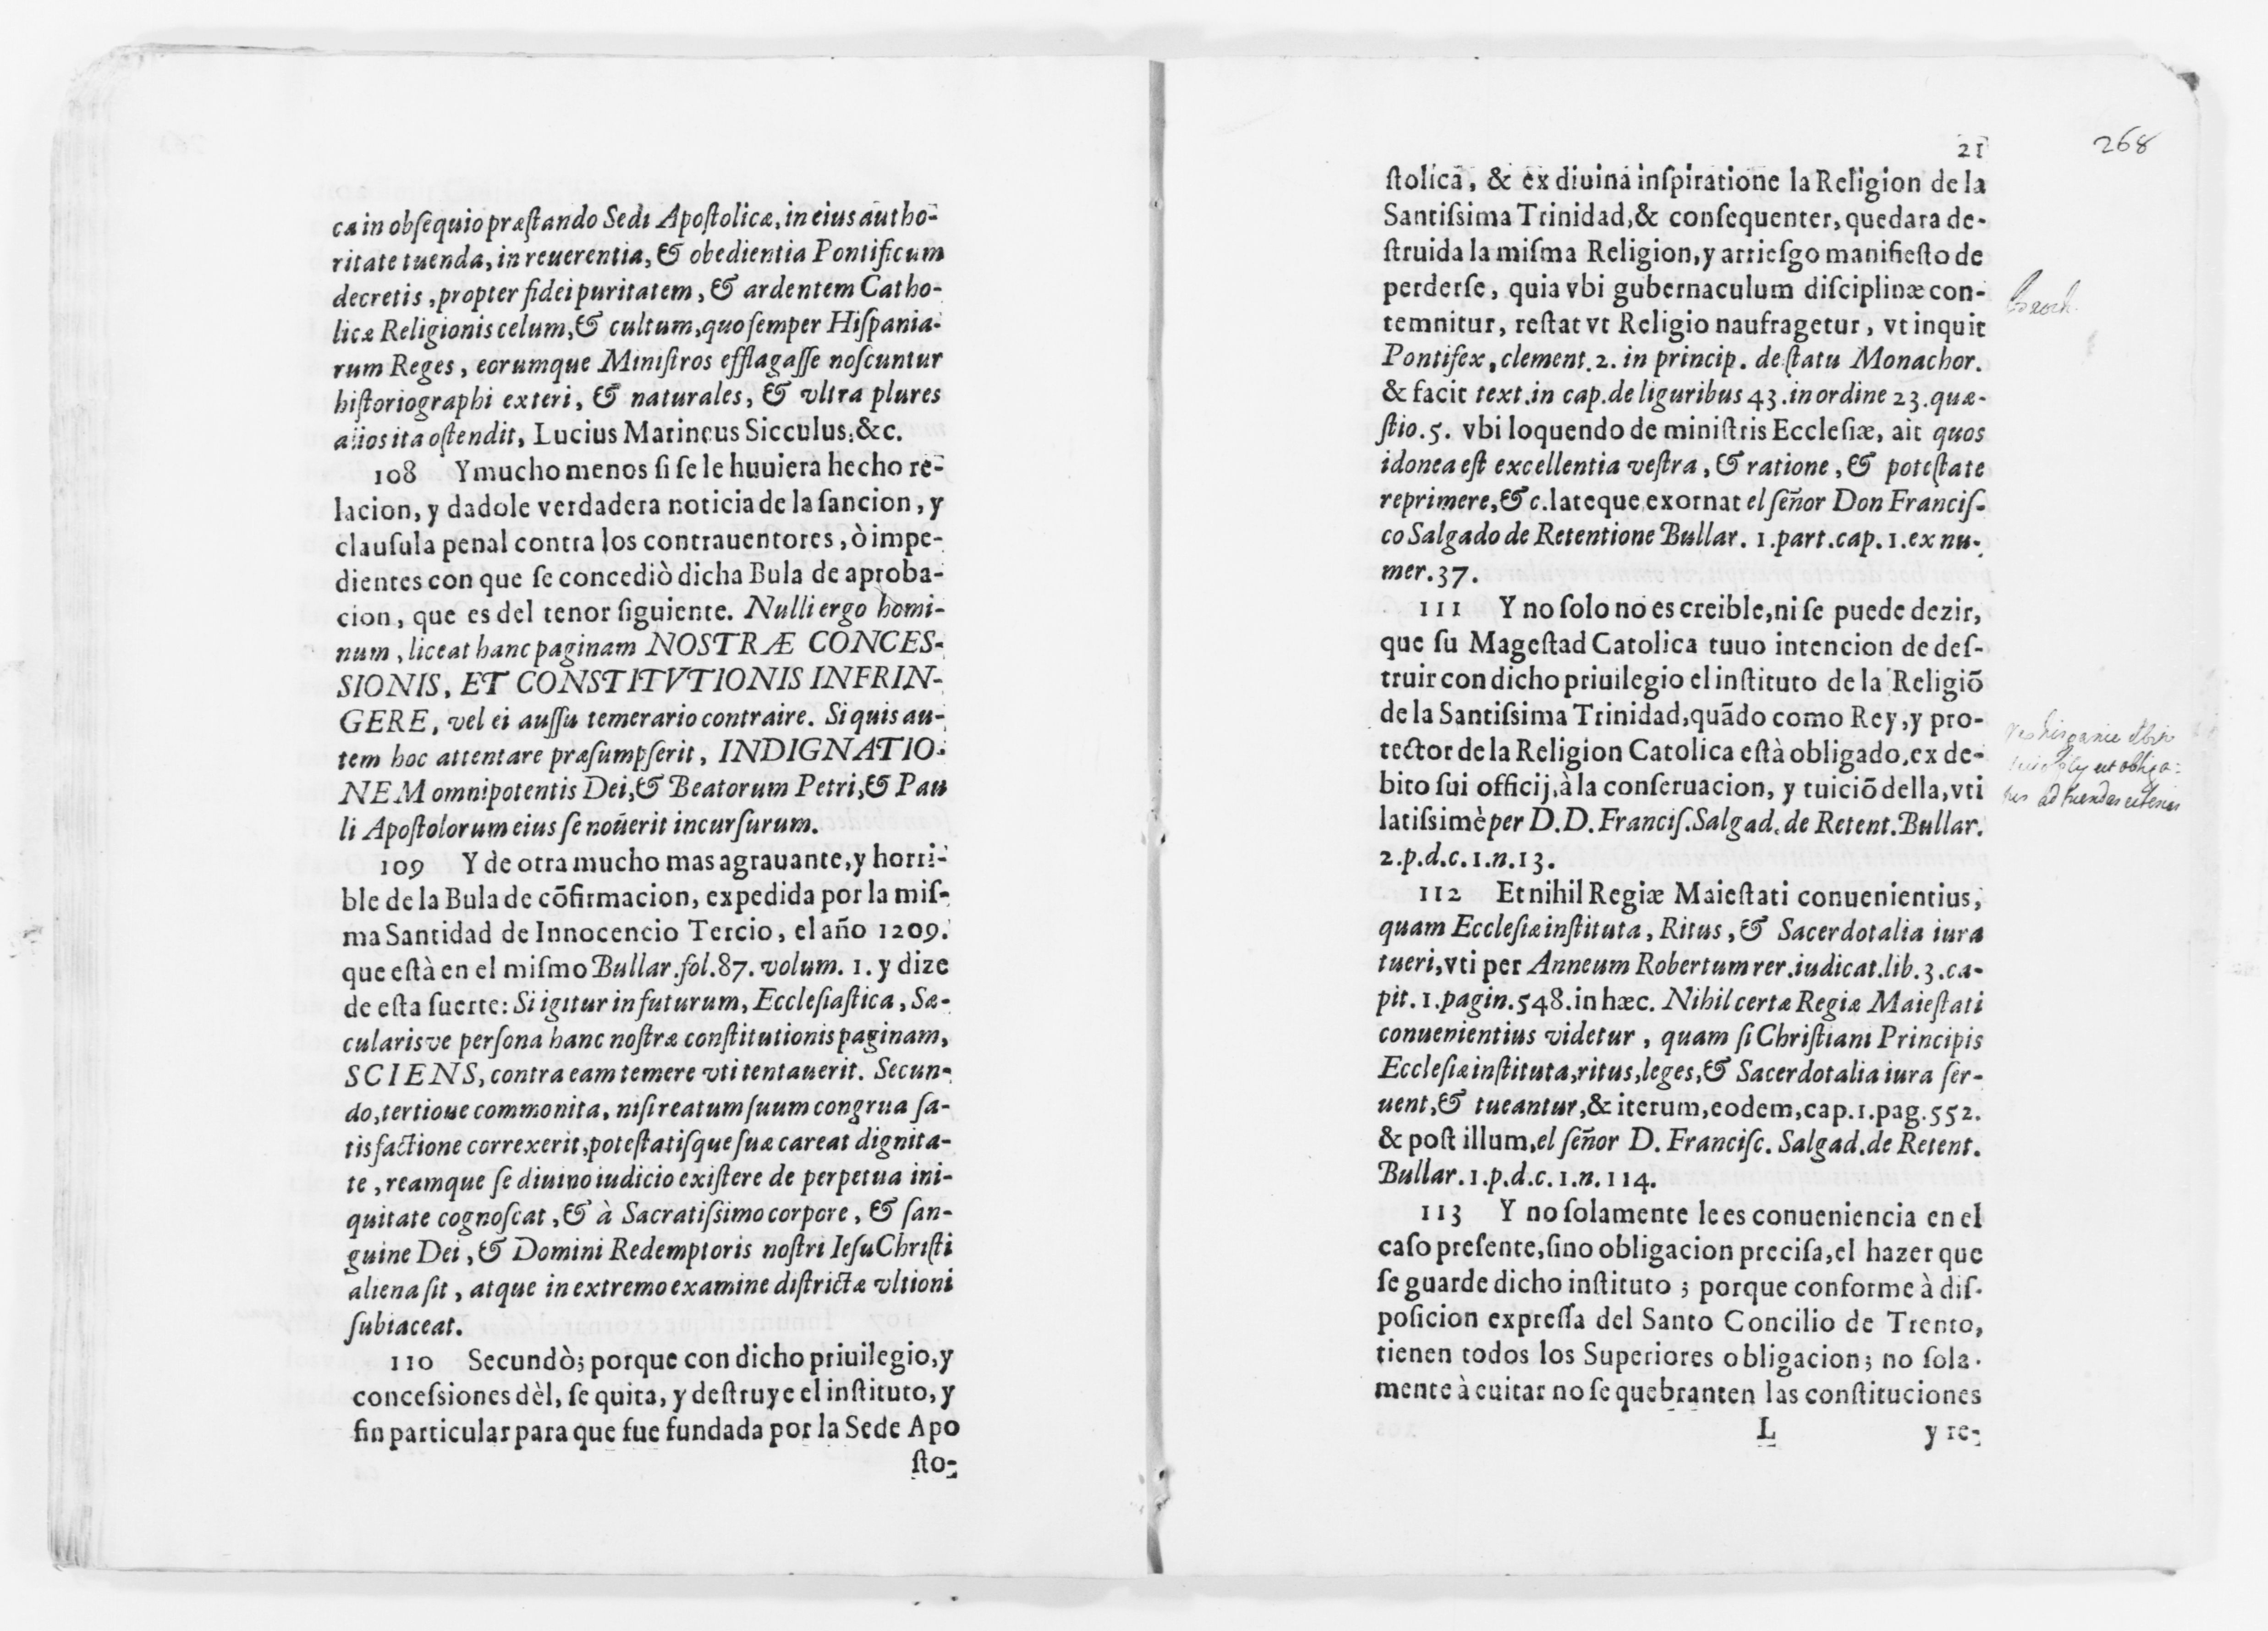 ca in obſequio præſtando Sedi Apoſtolicæ, in eius autho-
ritate tuenda, in reuerentia, & obedientia Pontificum
decretis, propter fidei puritatem, & ardentem Catho-
licæ Religionis celum, & cultum, quo ſemper Hiſpania-
rum Reges, eorumque Miniſtros efflagaſſe noſcuntur
hiſtoriographi exteri, & naturales, & vltra plures
alios ita oſtendit, Lucius Marineus Sicculus, &c.
108 Y mucho menos ſi ſe le huuiera hecho re-
lacion, y dadole verdadera noticia de la ſancion, y
clauſula penal contra los contrauentores, ò impe-
dientes con que ſe concediò dicha Bula de aproba-
cion, que es del tenor ſiguiente. Nulli ergo homi-
num, liceat hanc paginam NOSTRÆ CONCES-
SIONIS, ET CONSTITVTIONIS INFRIN-
GERE, vel ei auſſu temerario contraire. Si quis au-
tem hoc attentare præſumpſerit, INDIGNATIO-
NEM omnipotentis Dei, & Beatorum Petri, & Pau
li Apoſtolorum eius ſe noûerit incurſurum.
109 Y de otra mucho mas agrauante, y horri-
ble de la Bula de cõfirmacion, expedida por la miſ-
ma Santidad de Innocencio Tercio, el año 1209.
que eſtà en el miſmo Bullar. fol. 87. volum. 1. y dize
de eſta ſuerte: Si igitur in futurum, Eccleſiaſtica, Sæ-
cularisve perſona hanc noſtræ conſtitutionis paginam,
SCIENS, contra eam temere vti tentauerit. Secun-
do, tertioue commonita, niſi reatum ſuum congrua ſa-
tisfactione correxerit, poteſtatiſque ſuæ careat dignita-
te, reamque ſe diuino iudicio exiſtere de perpetua ini-
quitate cognoſcat, & à Sacratiſsimo corpore, & ſan-
guine Dei, & Domini Redemptoris noſtri Ieſu Chriſti
aliena ſit, atque in extremo examine diſtrictæ vltioni
ſubiaceat.
110 Secundò; porque con dicho priuilegio, y
conceſsiones dèl, ſe quita, y deſtruye el inſtituto, y
fin particular para que fue fundada por la Sede Apo
ſto-
21
268
ſtolica, & ex diuina inſpiratione la Religion de la
Santiſsima Trinidad, & conſequenter, quedara de-
ſtruida la miſma Religion, y arrieſgo manifieſto de
perderſe, quia vbi gubernaculum diſciplinæ con-
temnitur, reſtat vt Religio naufragetur, vt inquit
Pontifex, clement. 2. in princip. de ſtatu Monachor.
& facit text. in cap. de liguribus 43. in ordine 23. quæ-
ſtio. 5. vbi loquendo de miniſtris Eccleſiæ, ait quos
idonea eſt excellentia veſtra, & ratione, & poteſtate
reprimere, & c. lateque exornat el ſeñor Don Franciſ-
co Salgado de Retentione Bullar. 1. part. cap. 1. ex nu-
mer. 37.
111 Y no ſolo no es creible, ni ſe puede dezir,
que ſu Mageſtad Catolica tuuo intencion de deſ-
truir con dicho priuilegio el inſtituto de la Religiõ
de la Santiſsima Trinidad, quãdo como Rey, y pro-
tector de la Religion Catolica eſtà obligado, ex de-
bito ſui officij, à la conſeruacion, y tuiciõ della, vti
latiſsimè per D.D. Franciſ. Salgad. de Retent. Bullar.
2. p. d. c. 1. n. 13.
ad tuendas
112 Et nihil Regiæ Maieſtati conuenientius,
quam Eccleſiæ inſtituta, Ritus, & Sacerdotalia iura
tueri, vti per Anneum Robertum rer. iudicat. lib. 3. ca-
pit. 1. pagin. 548. in hæc. Nihil certæ Regiæ Maieſtati
conuenientius videtur, quam ſi Chriſtiani Principis
Eccleſiæ inſtituta, ritus, leges, & Sacerdotalia iura ſer-
uent, & tueantur, & iterum, eodem, cap. 1. pag. 552.
& poſt illum, el ſeñor D. Franciſc. Salgad. de Retent.
Bullar. 1. p. d. c. 1. n. 114.
113 Y no ſolamente le es conueniencia en el
caſo preſente, ſino obligacion preciſa, el hazer que
ſe guarde dicho inſtituto; porque conforme à diſ-
poſicion expreſſa del Santo Concilio de Trento,
tienen todos los Superiores obligacion; no ſola-
mente à euitar no ſe quebranten las conſtituciones
L y re-